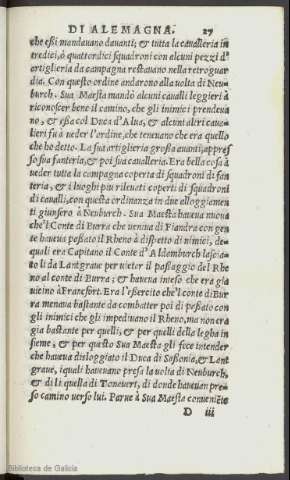 DI ALEMAGNA. 27
che eßi mandauano dauanti; & tutta la caualleria in
tredici, ò quattordici squadroni con alcuni pezzi d'
artiglieria da campagna restauano nella retroguar
dia. Con questo ordine andarono alla volta di Neu
burch. Sua Maestà mandò alcuni caualli leggieri à
riconoscer bene il camino, che gli inimici prendeua
no, & eßa col Duca d'Alua, & alcuni altri caua-
lieri fu à veder l'ordine, che teneuano che era quello
che ho detto. La sua artiglieria grossa auanti, appres
so sua fanteria, & poi sua caualleria. Era bella cosa à
veder tutta la campagna coperta di squadroni di fan
teria, & i luoghi piu rileuati coperti di squadroni
di caualli, con questa ordinanza in due alloggiamen
ti giunsero à Neuburch. Sua Maestà haueua nuoua
che'l Conte di Burra che veniua di Fiandra con gen
te haueua peßato il Rheno à dispetto di nimici, de-
quali era Capitano il Conte d'Aldemburch lascia-
to li da Lantgraue per vietar il paßaggio del Rhe
no al conte di Burra; & haueua inteso che era gia
vicino à Francfort. Era l'esercito che'l conte di Bur
ra menaua bastante da combatter poi di peßato con
gli inimici che gli impediuano il Rheno, ma non era
gia bastante per quelli, & per quelli della legha in
sieme, & per questo Sua Maestà gli fece intender
che haueua disloggiato il Duca di Saßonia, & Lant
graue, iquali haueuano presa la volta di Neuburch,
& di li quella di Toneuert, di donde haueuan pre-
so camino verso lui. Parue à Sua Maestà conueniẽte
D iii
Biblioteca de Galicia